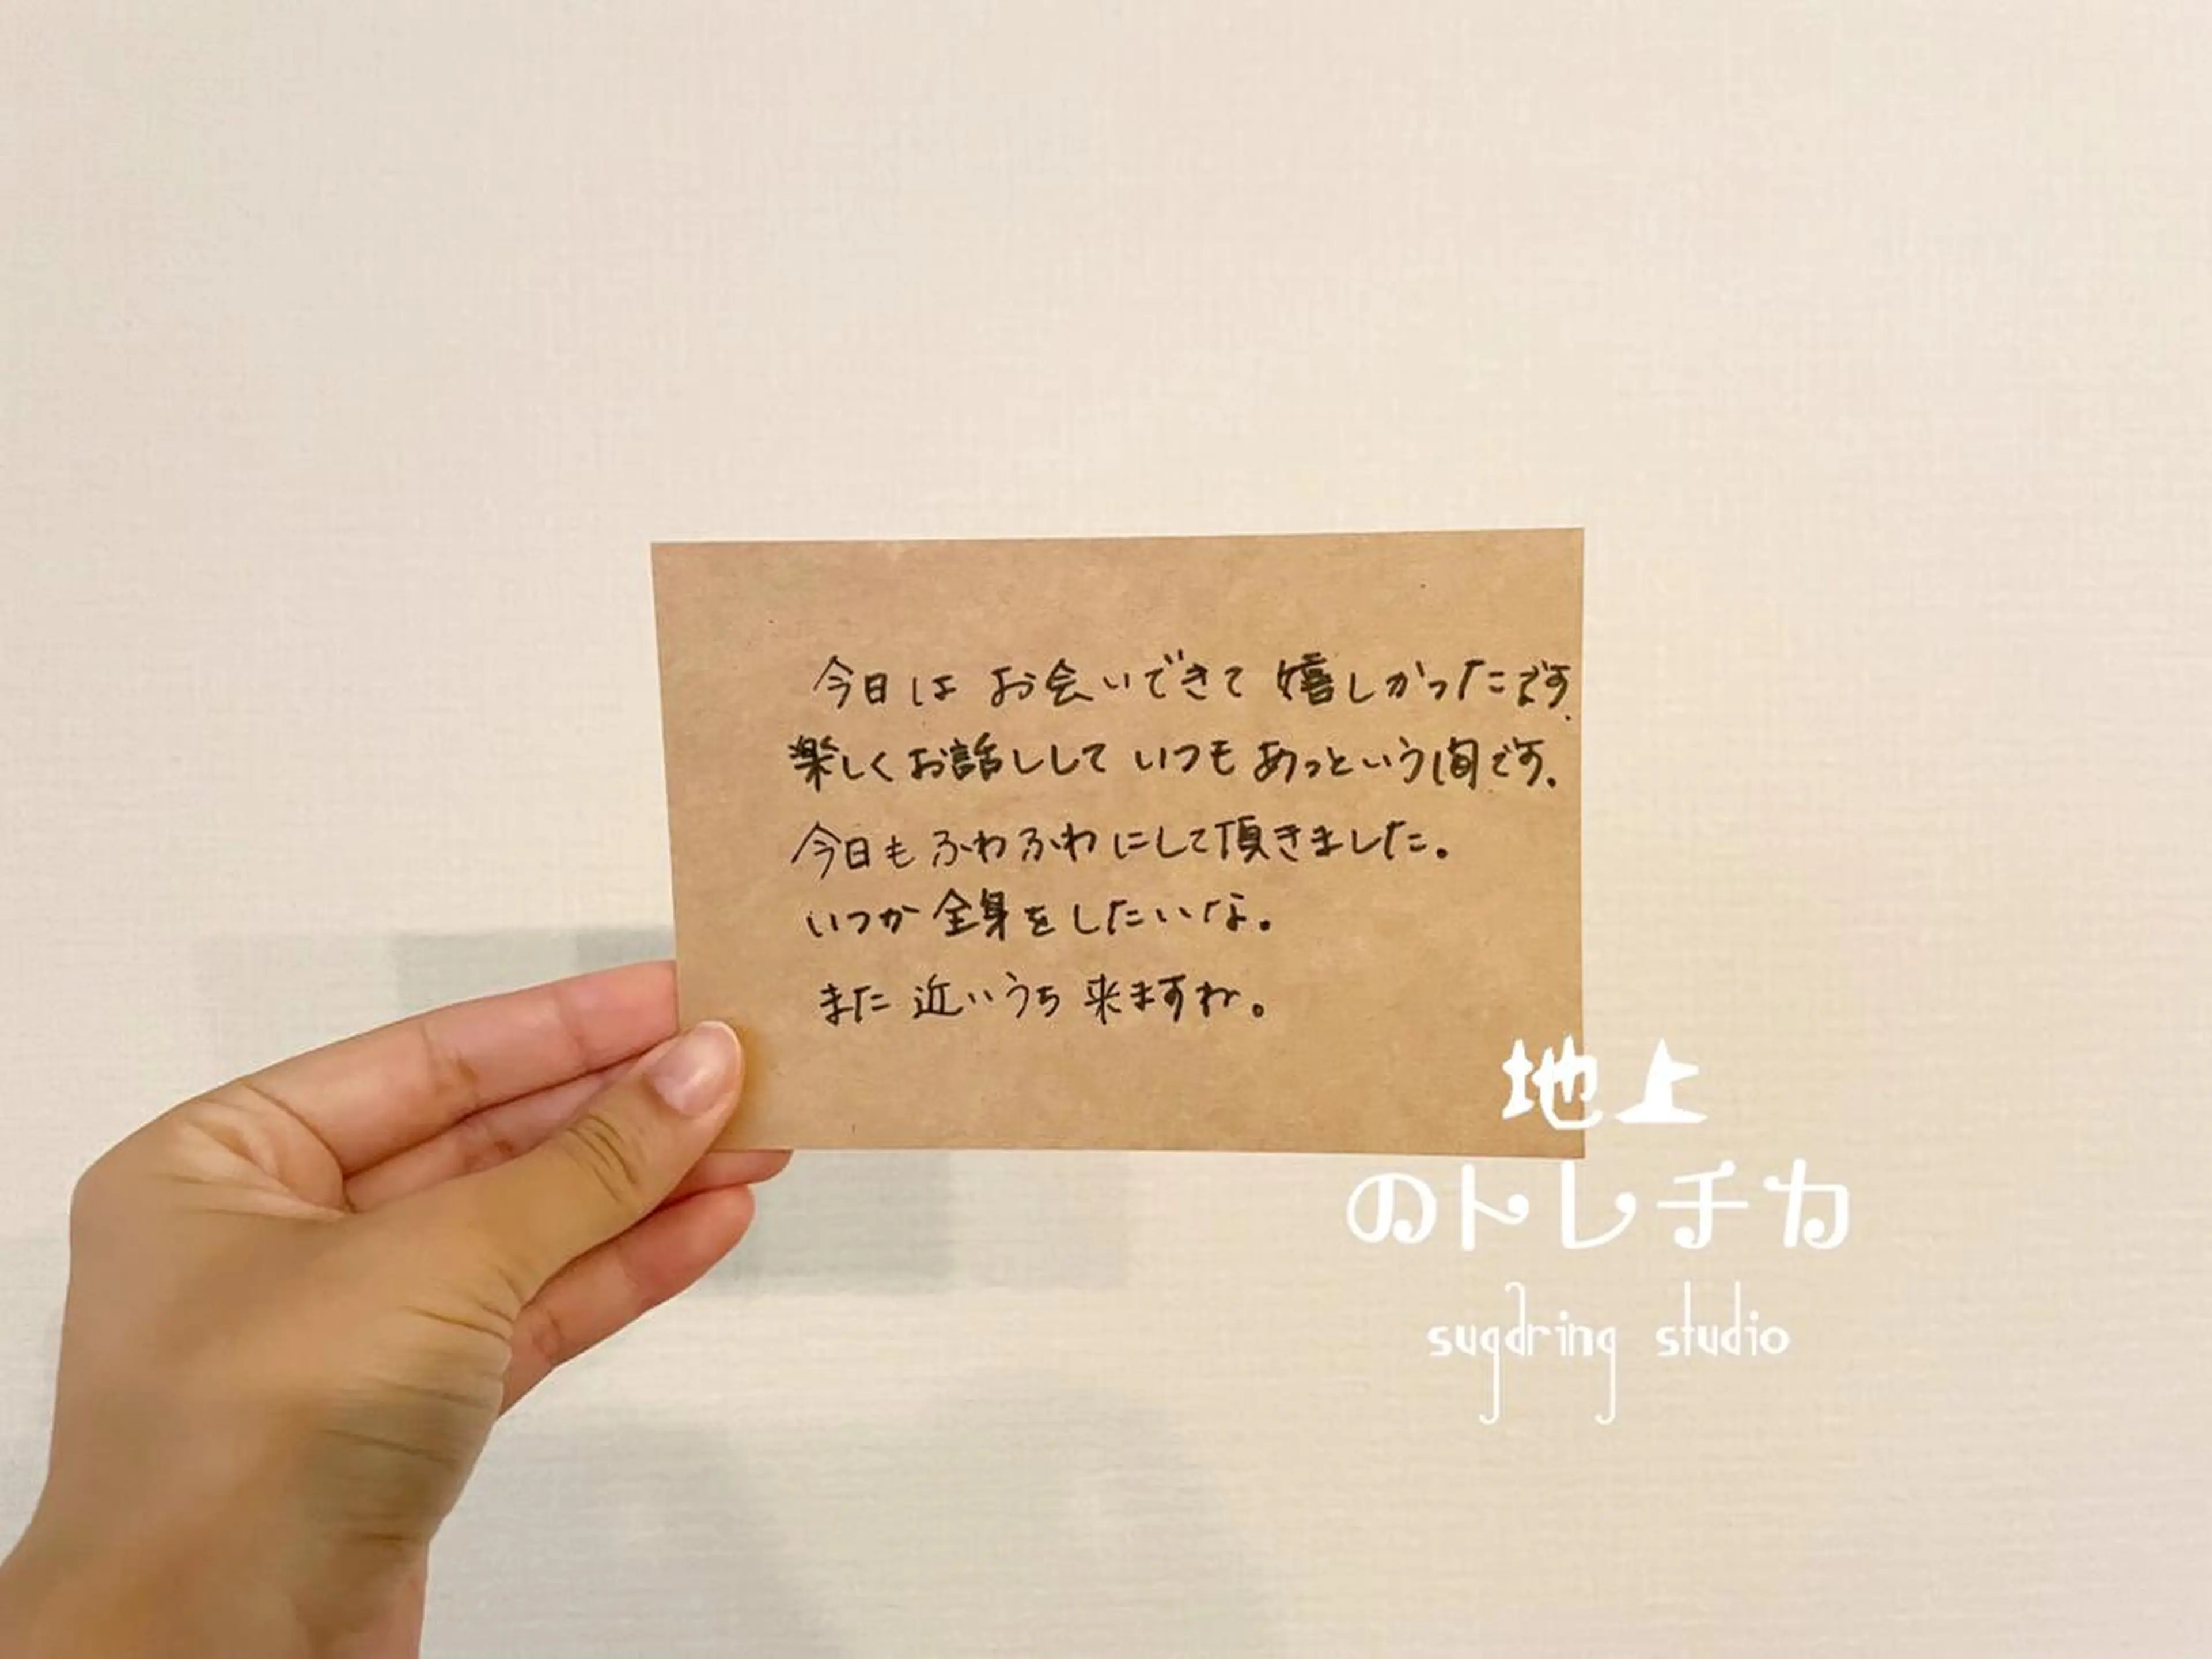 今日は お会いできて 嬉しかったです.
楽しくお話しして いつも あっという間です.
今日も ふわふわ にして頂きました。
いつか 全身を したいな。
また 近いうち 来ますね。
地上
のトレチカ
sugaring studio